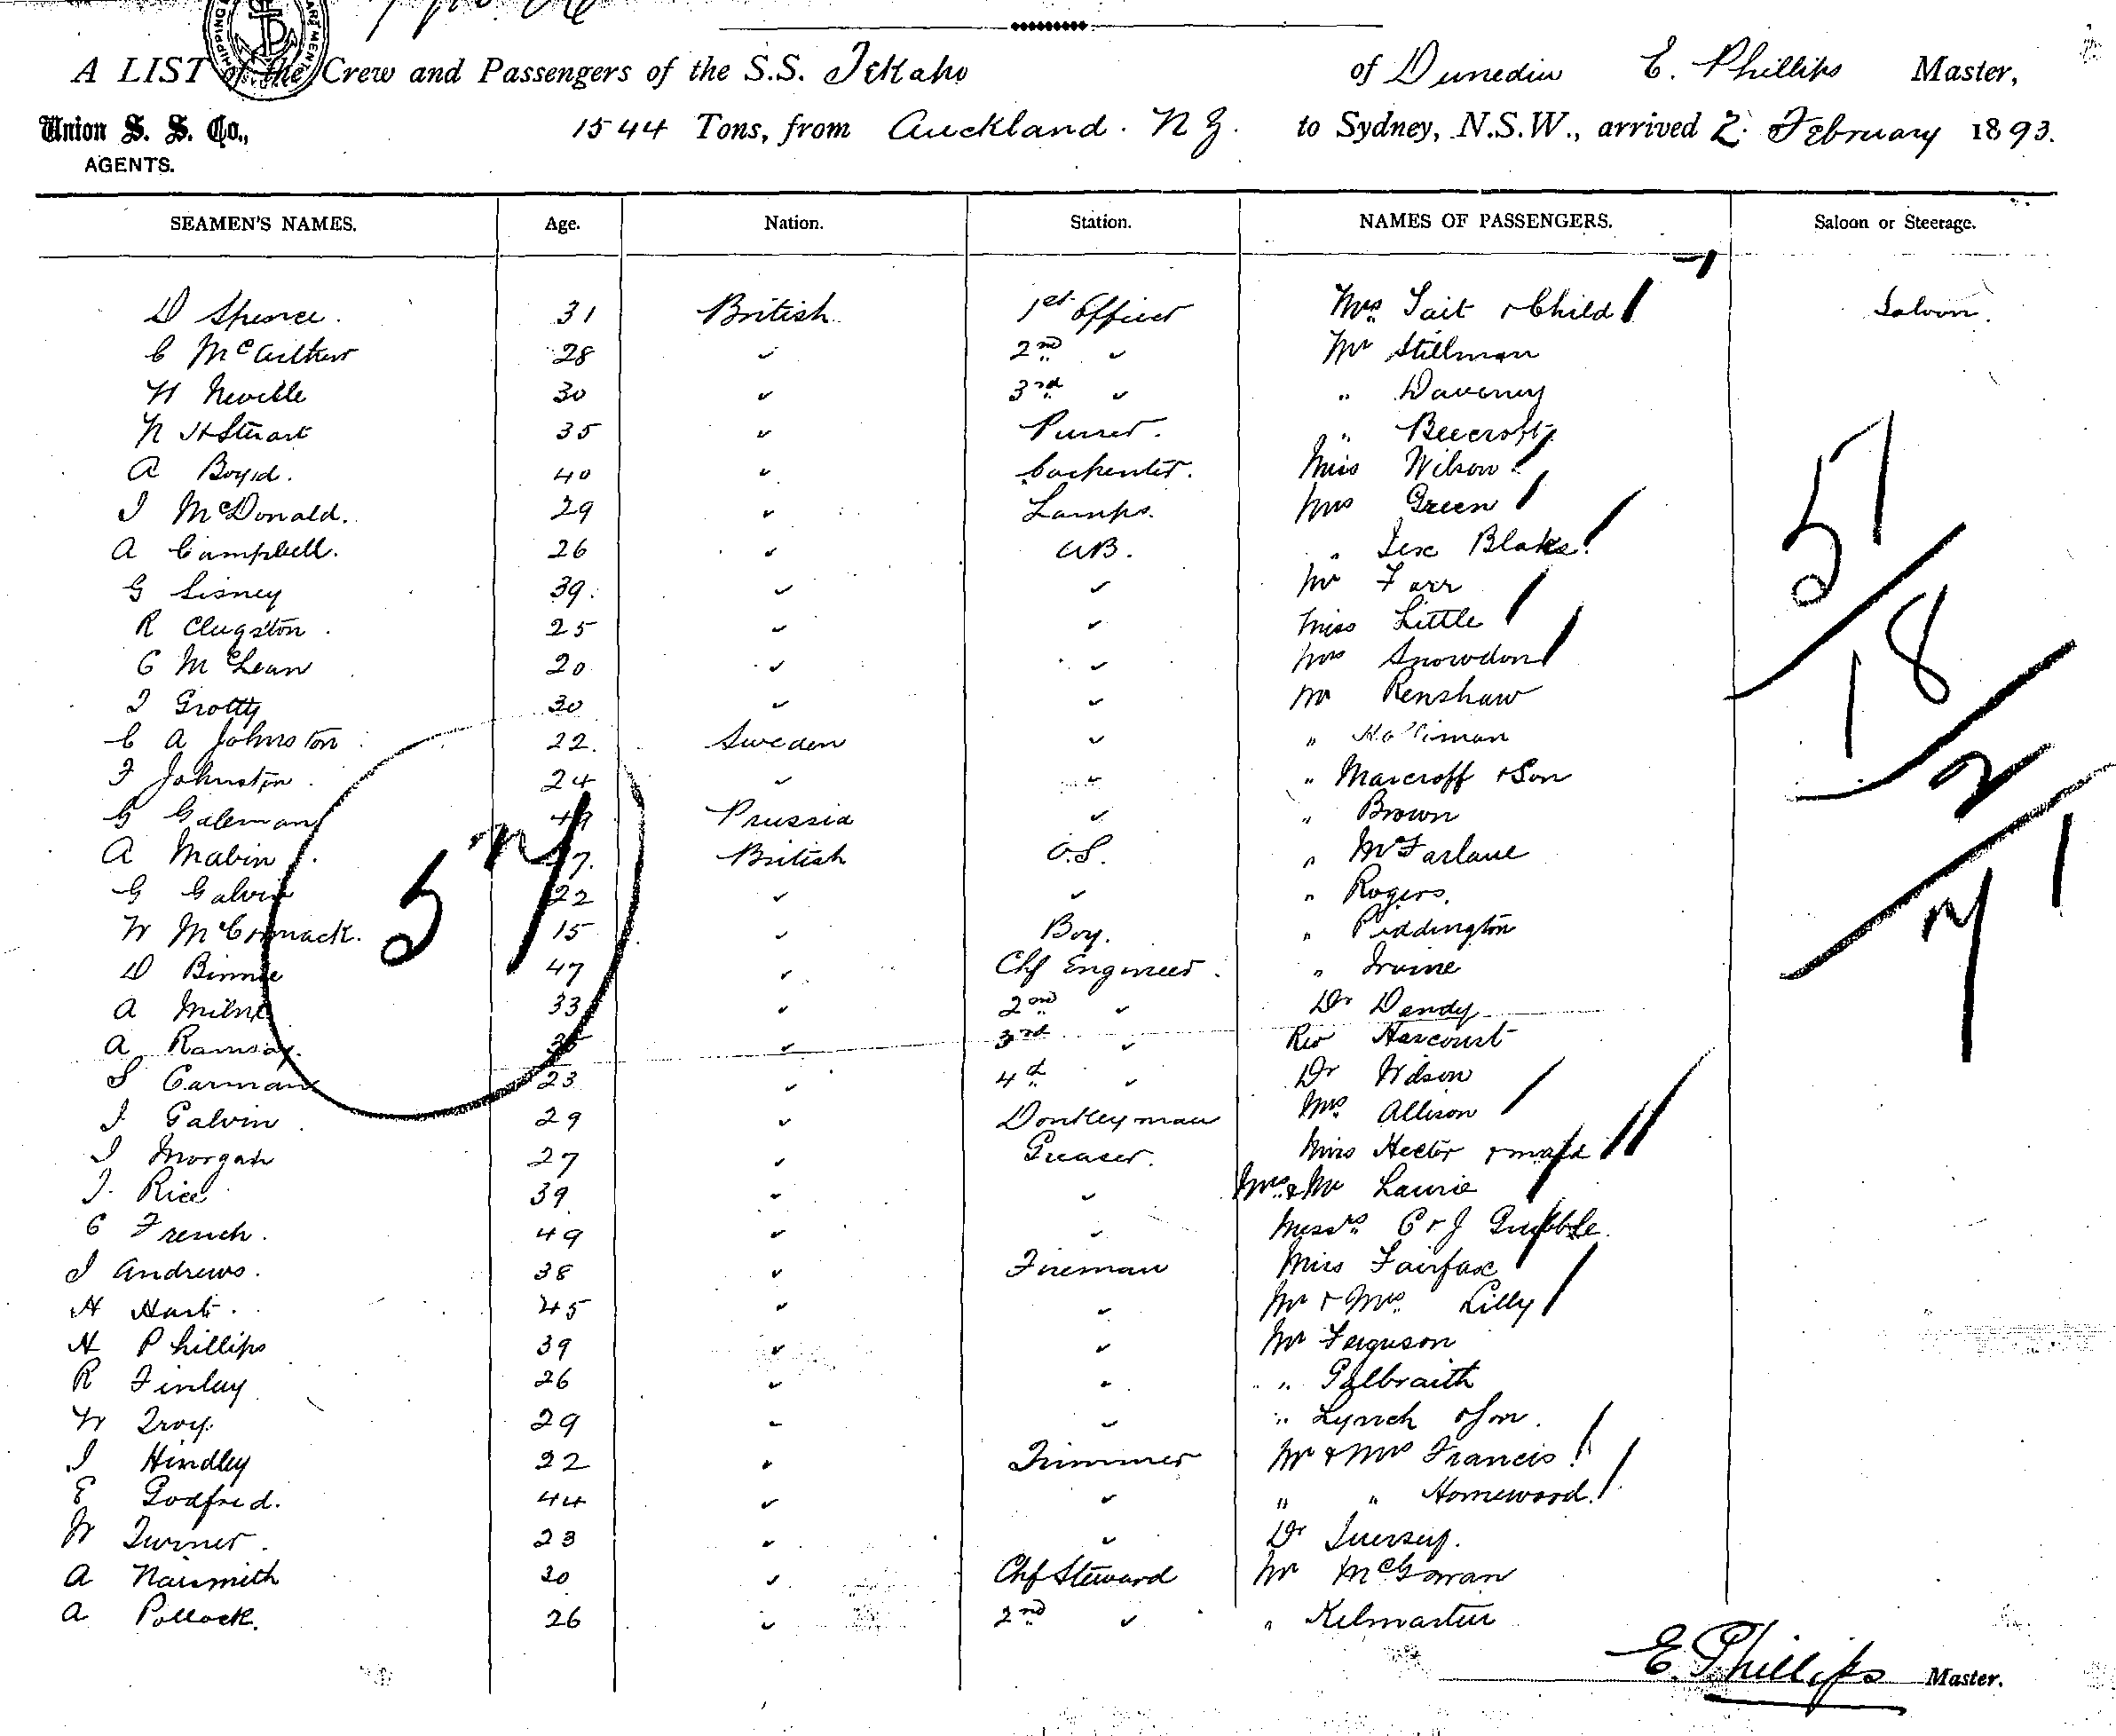 A LIST of the Crew and Passengers of the S.S. Tekapo of Dunedin E. Phillips Master,
Union S. S. Co., AGENTS. 1544 Tons, from Auckland. N Z. to Sydney, N.S.W., arrived 2. February 1893.
SEAMEN'S NAMES. Age. Nation. Station. NAMES OF PASSENGERS. Saloon or Steerage.
D Spence. 31 British 1st Officer Mrs Tait & Child Saloon.
C McArthur 28 " 2nd " Mr Stillman
H Neville 30 " 3rd " " Daveney
N H Stuart 35 " Purser. " Beecroft
A Boyd. 40 " Carpenter. Miss Wilson
J McDonald. 29 " Lamps. Mrs Green
A Campbell. 26 " AB. " Lex Blake
G Sisney 39. " " Mr Farr
R Clugston. 25 " " Miss Little
C McLean 20 " " Mrs Snowdon
J Grotty 30 " " Mr Renshaw
C A Johnston 22. Sweden " "
F Johnston 24 " " " Marcroff & Son
G Galeman 49 Prussia " " Brown
A Mabin 17. British O.S. " McFarlane
G Galvin 22 " " " Rogers.
W McCormack. 15 " Boy. " Piddington
D Binnie 47 " Chf Engineer. " Irvine
A Milne 33 " 2nd " Dr Dendy
A Ramsay. 35 " 3rd " Rev Harcourt
S Carman 23 " 4th " Dr Wilson
J Galvin 29 " Donkeyman Mrs Allison
J Morgan 27 " Greaser. Miss Hector & maid
J. Rice 39 " " Mrs & Mr Laurie
C French. 49 " " Messrs C & J Gribble.
J Andrews. 38 " Fireman Miss Fairfax
H Hart. 45 " " Mr & Mrs Lilly
H Phillips 39 " " Mr Ferguson
R Finlay 26 " " " Galbraith
W Troy. 29 " " " Lynch & Son.
J Hindley 22 " Trimmer Mr & Mrs Francis
E Godfred. 44 " " " " Homewood
W Turner. 23 " " Dr
A Naismith 30 " Chf Steward Mr McGowan
A Pollock. 26 " 2nd " " Kilmartin
57
51
18
2
71
E. Phillips Master.